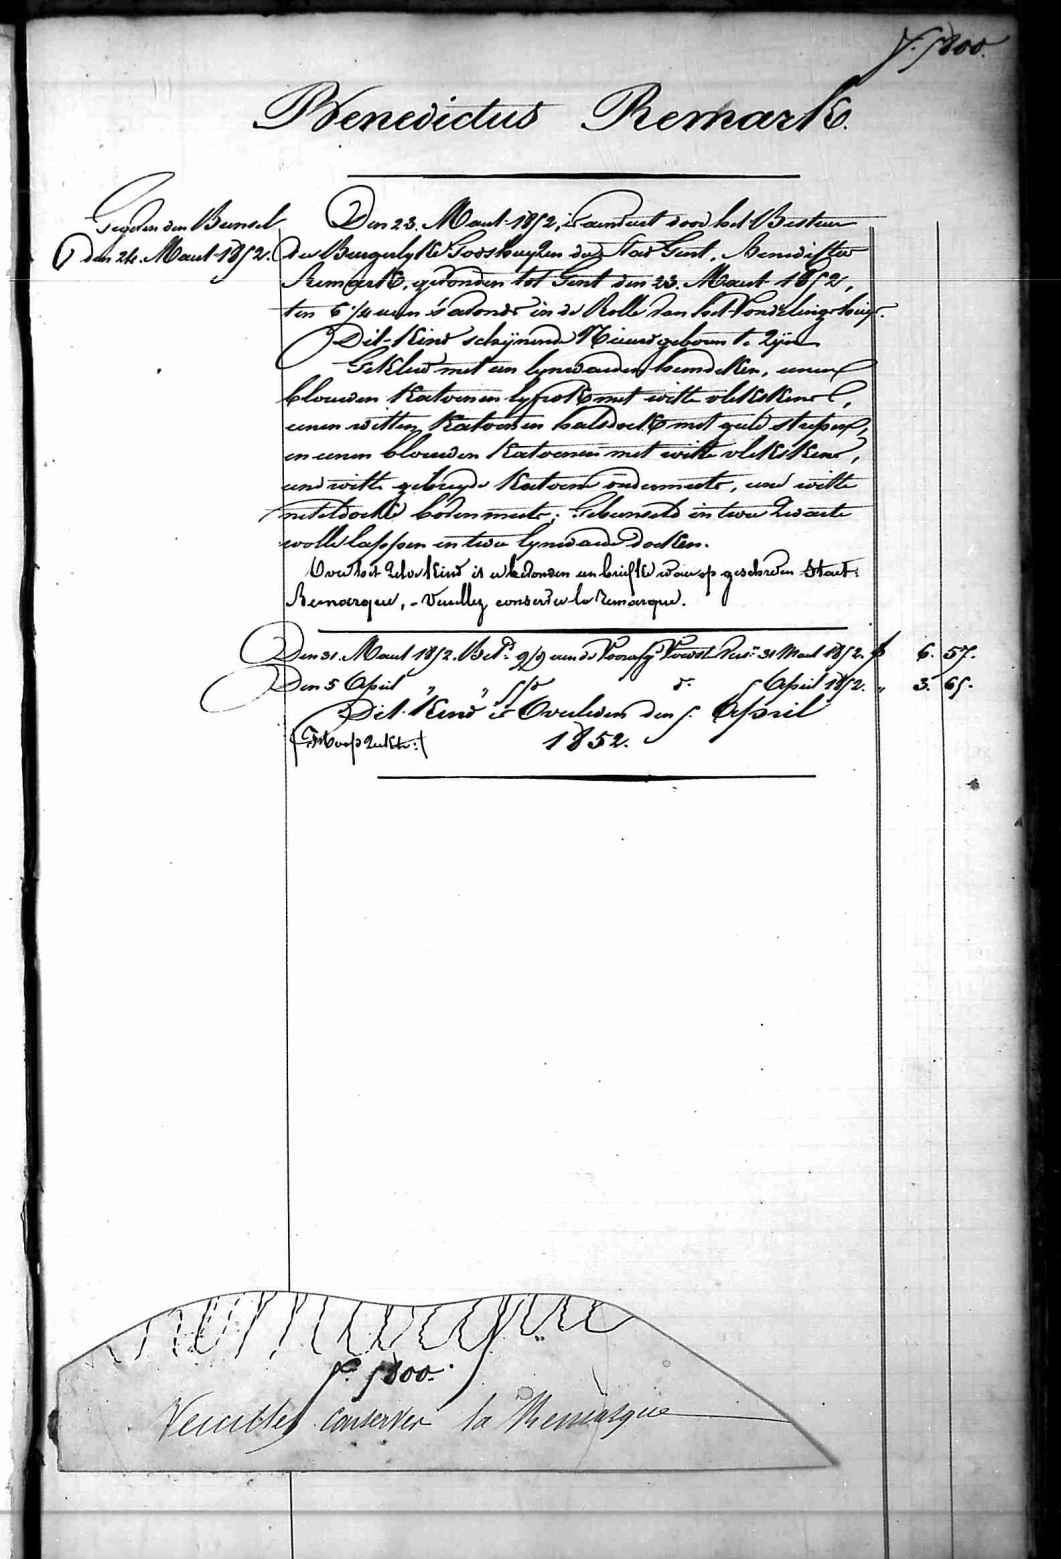 f. 5800.
Benedictus Remark.
Gegeven den Bunsel
den 24. Maart 1852.
Den 23. Maart 1852, is aenveert door het Bestuer
der Burgerlyke Godshuyzen der Stad Gent, Benedictus
Remark, gevonden tot Gent den 23. Maart 1852,
ten 6 1/4 uren s'avonds in de Rolle van het Vondelingshuys.
Dit Kind schynende Nieuwgeboren te zyn
Gekleed met een lynwaeden hemdeken, eenen
blouwen katoenen lyfrok met witte vlekskens,
eenen witten katoenen halsdoek met gule strepen,
en eenen blouwen katoenen met witte vlekskens,
eene witte gebreyde katoene ondermuts, eene witte
neteldoeke bovenmuts; Gebunseld in twee zwarte
wolle lappen en twee lynwaede doeken.
Over het zelve Kind is er bevonden een briefke waerop geschreven staet:
Remarque, - Veuillez conserver la remarque.
Den 31. Maart 1852. Bet.d 9/9 aen de Voorsz. Voedst. Vers. 31 Maart 1852. f 6. 57.
Den 5 April " " 5/5 d. 5 April 1852. " 3. 65.
Dit Kind is Overleden den 5. April
1852.
remarque
f. 5800.
Veuillez conserver la Remarque